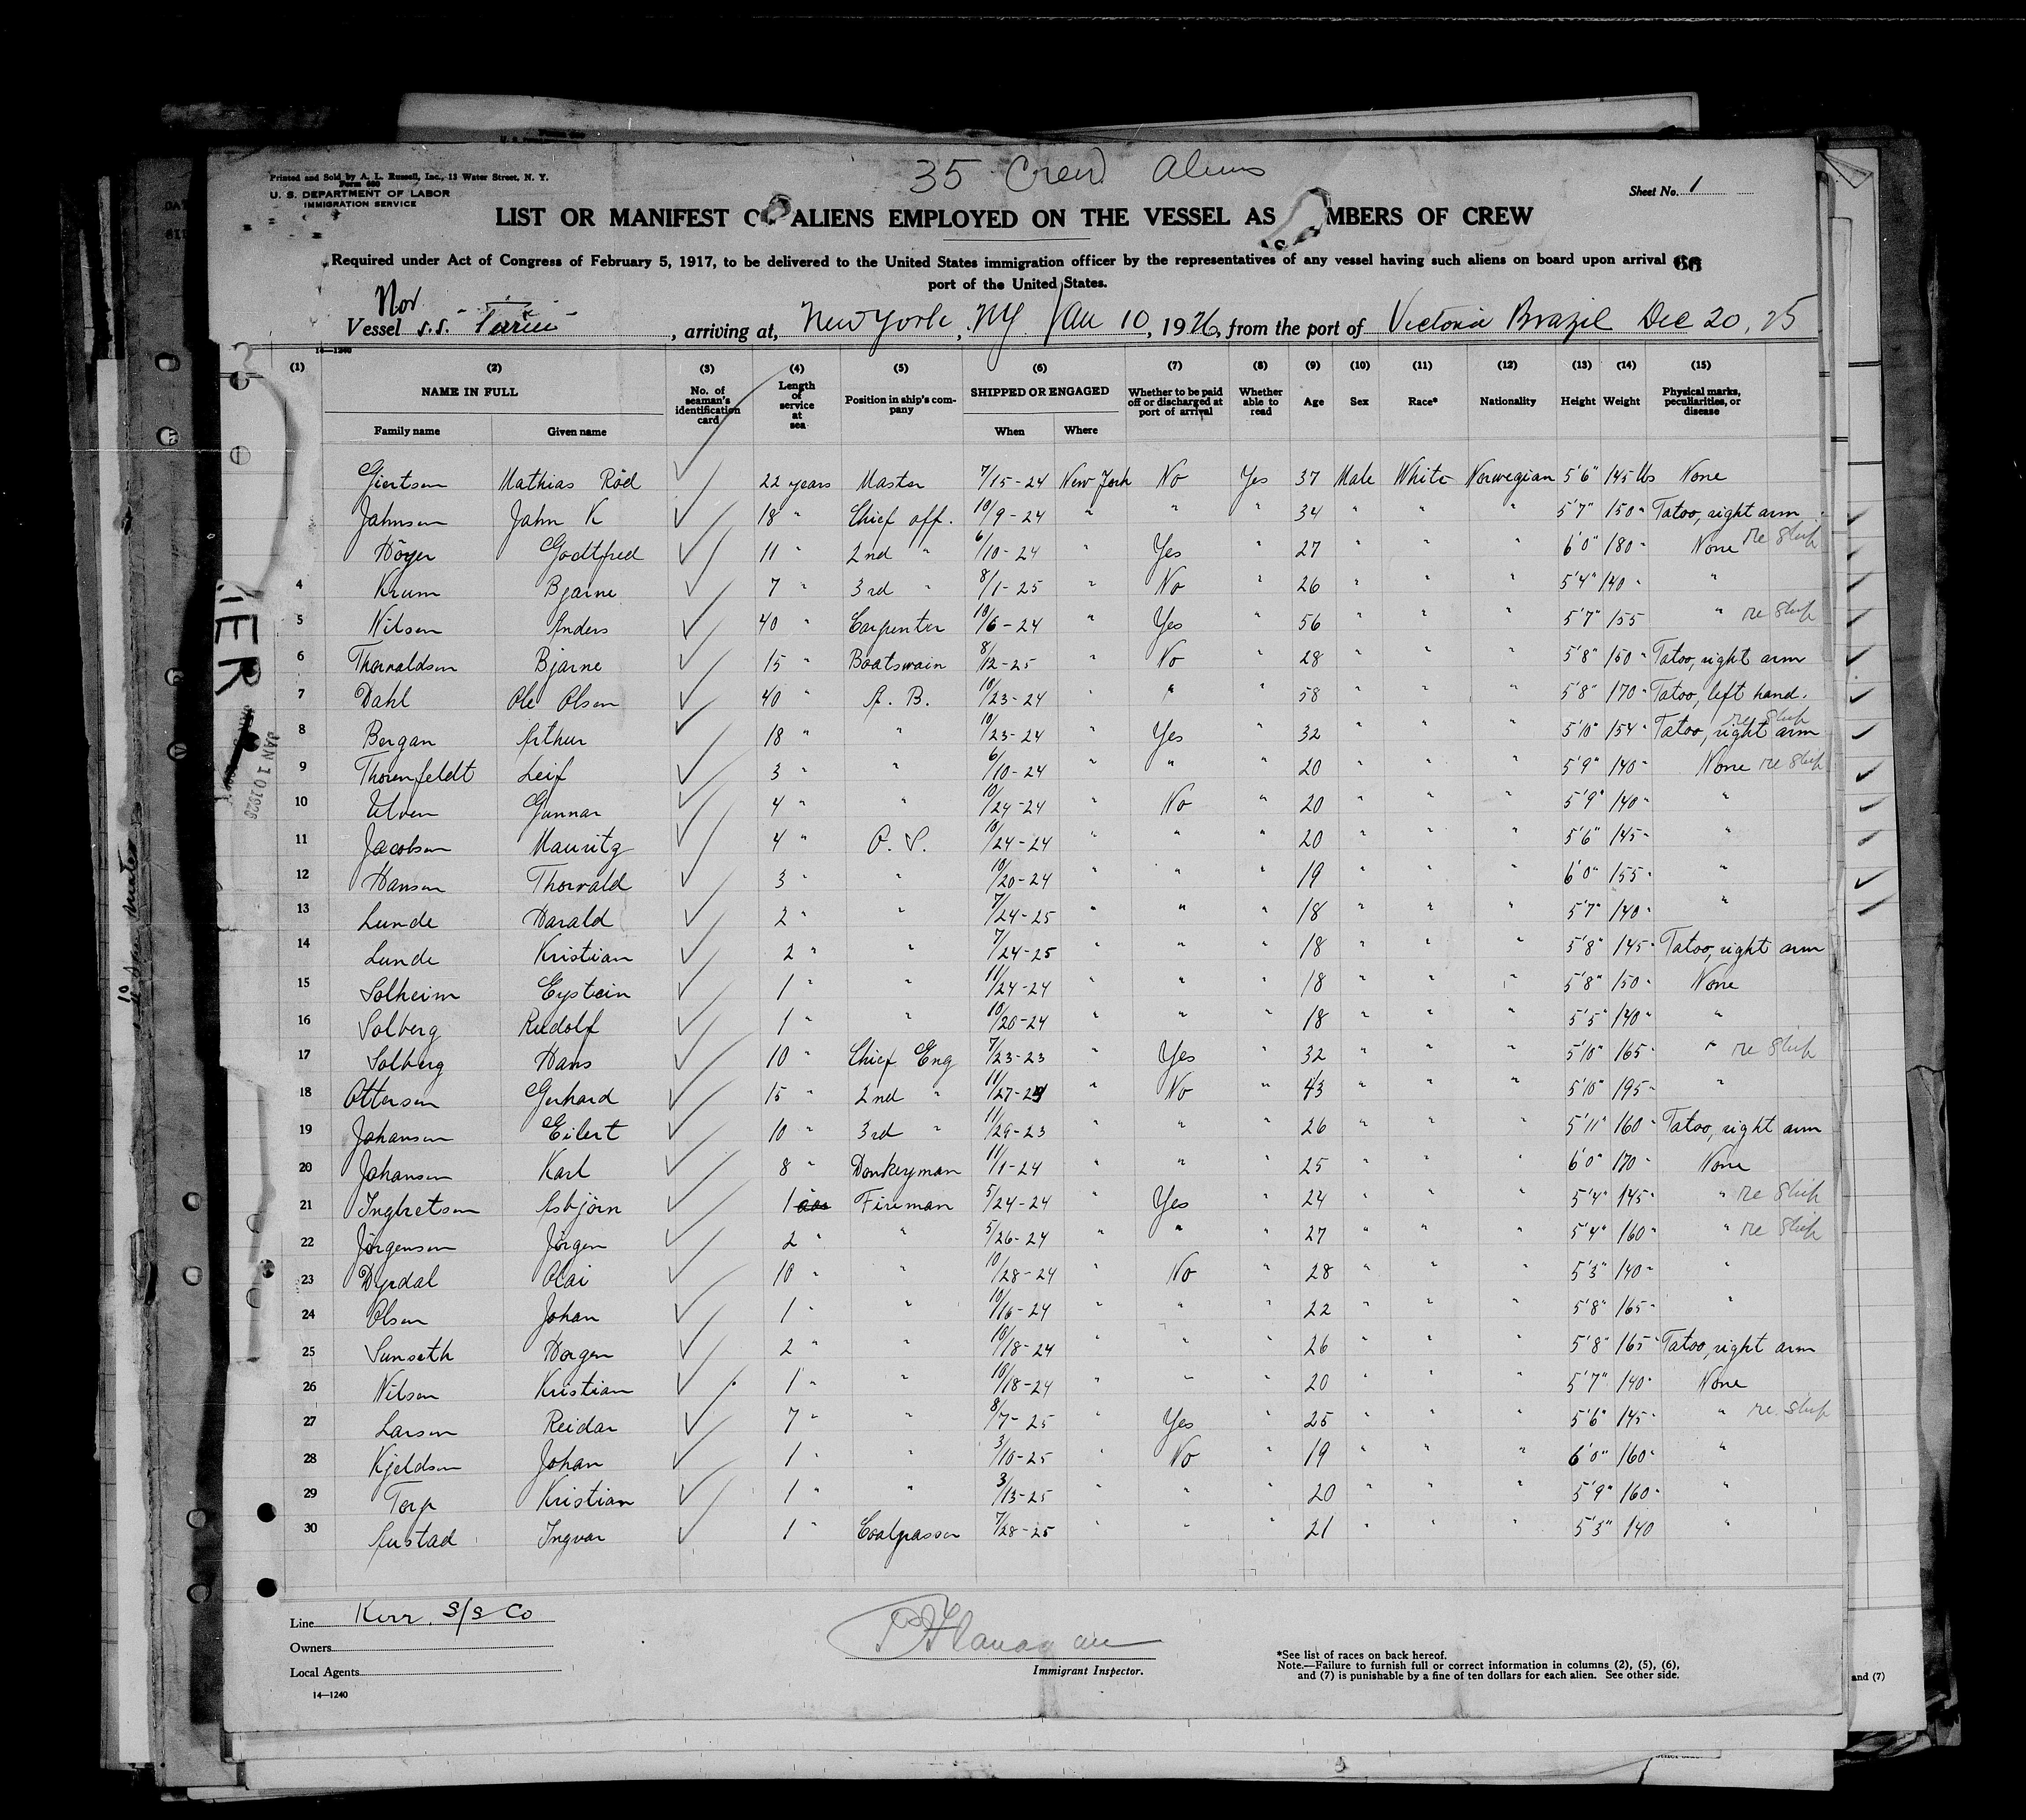 35 Crew Aliens
Printed and Sold by A. L. Russell, Inc., 13 Water Street, N. Y.
Form 680
U. S. DEPARTMENT OF LABOR
IMMIGRATION SERVICE
Sheet No. 1
LIST OR MANIFEST O ALIENS EMPLOYED ON THE VESSEL AS MBERS OF CREW
Required under Act of Congress of February 5, 1917, to be delivered to the United States immigration officer by the representatives of any vessel having such aliens on board upon arrival 66
port of the United States.
Nor
Vessel s.s. , arriving at, New York, NY Jan 10, 1926, from the port of Victoria Brazil Dec 20, 25
14—1240
(1) (2) (3) (4) (5) (6) (7) (8) (9) (10) (11) (12) (13) (14) (15)
NAME IN FULL No. of seaman's identification card Length of service at sea Position in ship's company SHIPPED OR ENGAGED Whether to be paid off or discharged at port of arrival Whether able to read Age Sex Race* Nationality Height Weight Physical marks, peculiarities, or disease
Family name Given name When Where
Giertsen Mathias Röed 22 years Master 7/15-24 New York No Yes 37 Male White Norwegian 5'6" 145 lbs None
Jahnsen Jahn K 18 " Chief off. 10/9-24 " " " 34 " " " 5'7" 150 " Tatoo, right arm
Höyer Godtfred 11 " 2nd " 6/10-24 " Yes " 27 " " " 6'0" 180 " None re ship
4 Krum Bjarne 7 " 3rd " 8/1-25 " No " 26 " " " 5'4" 140 " "
5 Nilsen Anders 40 " Carpenter 10/6-24 " Yes " 56 " " " 5'7" 155 " re ship
6 Thorvaldsen Bjarne 15 " Boatswain 8/12-25 " No " 28 " " " 5'8" 150 " Tatoo, right arm
7 Dahl Ole Olsen 40 " A. B. 10/23-24 " " " 58 " " " 5'8" 170 " Tatoo, left hand.
8 Bergan Arthur 18 " " 10/23-24 " Yes " 32 " " " 5'10" 154 " Tatoo, right arm re ship
9 Thorenfeldt Leif 3 " " 6/10-24 " " " 20 " " " 5'9" 140 " None re ship
10 Ulven Gunnar 4 " " 10/24-24 " No " 20 " " " 5'9" 140 " "
11 Jacobsen Mauritz 4 " O. S. 10/24-24 " " " 20 " " " 5'6" 145 " "
12 Hansen Thorvald 3 " " 10/20-24 " " " 19 " " " 6'0" 155 " "
13 Lunde Harald 2 " " 7/24-25 " " " 18 " " " 5'7" 140 " "
14 Lunde Kristian 2 " " 7/24-25 " " " 18 " " " 5'8" 145 " Tatoo, right arm
15 Solheim Eystein 1 " " 11/24-24 " " " 18 " " " 5'8" 150 " None
16 Solberg Rudolf 1 " " 10/20-24 " " " 18 " " " 5'5" 140 " "
17 Solberg Hans 10 " Chief Eng 7/23-23 " Yes " 32 " " " 5'10" 165 " " re ship
18 Ottersen Gerhard 15 " 2nd " 11/27-24 " No " 43 " " " 5'10" 195 " "
19 Johansen Eilert 10 " 3rd " 11/29-23 " " " 26 " " " 5'11" 160 " Tatoo, right arm
20 Johansen Karl 8 " Donkeyman 11/1-24 " " " 25 " " " 6'0" 170 " None
21 Ingbretsen Asbjörn 1 Fireman 5/24-24 " Yes " 24 " " " 5'4" 145 " " re ship
22 Jörgensen Jörgen 2 " " 5/26-24 " " " 27 " " " 5'4" 160 " " re ship
23 Dyrdal Olai 10 " " 10/28-24 " No " 28 " " " 5'3" 140 " "
24 Olsen Johan 1 " " 10/16-24 " " " 22 " " " 5'8" 165 " "
25 Sunseth Horgen 2 " " 10/18-24 " " " 26 " " " 5'8" 165 " Tatoo, right arm
26 Nilsen Kristian 1 " " 10/18-24 " " " 20 " " " 5'7" 140 " None
27 Larsen Reidar 7 " " 8/7-25 " Yes " 25 " " " 5'6" 145 " " re ship
28 Kjeldsen Johan 1 " " 3/10-25 " No " 19 " " " 6'0" 160 " "
29 Torp Kristian 1 " " 3/13-25 " " " 20 " " " 5'9" 160 " "
30 Austad Ingvar 1 " Coalpasser 7/28-25 " " " 21 " " " 5'3" 140 "
JAN 10 1926
Line Kerr S/S Co
Owners
Local Agents
14—1240
Flanagan
Immigrant Inspector.
*See list of races on back hereof.
Note.—Failure to furnish full or correct information in columns (2), (5), (6),
and (7) is punishable by a fine of ten dollars for each alien. See other side.
and (7)